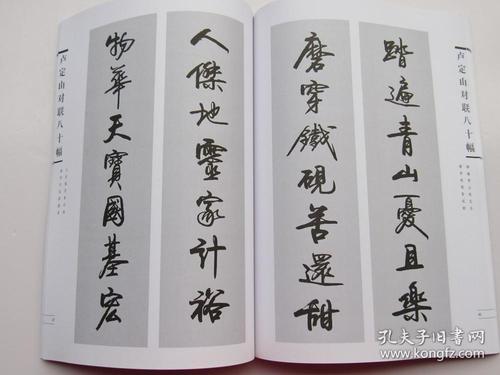 卢定山对联八十幅
踏遍青山憂且樂
磨穿鐵硯苦還甜
人傑地靈家計裕
物華天寶國基宏
卢定山对联八十幅
孔夫子旧书网
www.kongfz.com